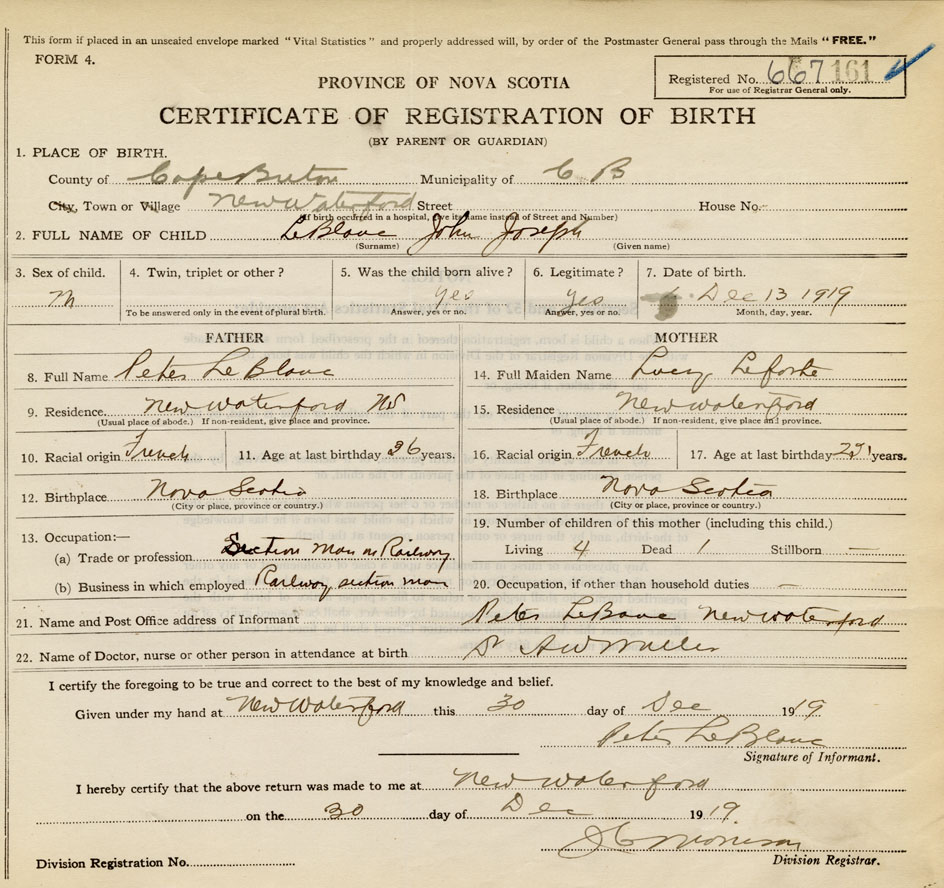 This form if placed in an unsealed envelope marked "Vital Statistics" and properly addressed will, by order of the Postmaster General pass through the Mails "FREE."
FORM 4.
Registered No. 667 161
For use of Registrar General only.
PROVINCE OF NOVA SCOTIA
CERTIFICATE OF REGISTRATION OF BIRTH
(BY PARENT OR GUARDIAN)
1. PLACE OF BIRTH.
County of Cape Breton Municipality of C B
City, Town or Village New Waterford Street House No.
(If birth occurred in a hospital, give its name instead of Street and Number)
2. FULL NAME OF CHILD LeBlanc John Joseph
(Surname) (Given name)
3. Sex of child. 4. Twin, triplet or other? 5. Was the child born alive? 6. Legitimate? 7. Date of birth.
M Yes Yes Dec 13 1919
To be answered only in the event of plural birth. Answer, yes or no. Answer, yes or no. Month, day, year.
FATHER
8. Full Name Peter LeBlanc
9. Residence. New Waterford NS
(Usual place of abode.) If non-resident, give place and province.
10. Racial origin French 11. Age at last birthday 36 years.
12. Birthplace Nova Scotia
(City or place, province or country.)
13. Occupation:—
(a) Trade or profession Section Man on Railway
(b) Business in which employed Railway section man
MOTHER
14. Full Maiden Name Lucy Leforte
15. Residence New Waterford
(Usual place of abode.) If non-resident, give place and province.
16. Racial origin French 17. Age at last birthday years.
18. Birthplace Nova Scotia
(City or place, province or country.)
19. Number of children of this mother (including this child.)
Living 4 Dead 1 Stillborn —
20. Occupation, if other than household duties —
21. Name and Post Office address of Informant Peter LeBlanc New Waterford
22. Name of Doctor, nurse or other person in attendance at birth Dr A W Miller
I certify the foregoing to be true and correct to the best of my knowledge and belief.
Given under my hand at New Waterford this 30 day of Dec 1919
Peter LeBlanc
Signature of Informant.
I hereby certify that the above return was made to me at New Waterford
on the 30 day of Dec 1919.
Division Registration No.
Division Registrar.